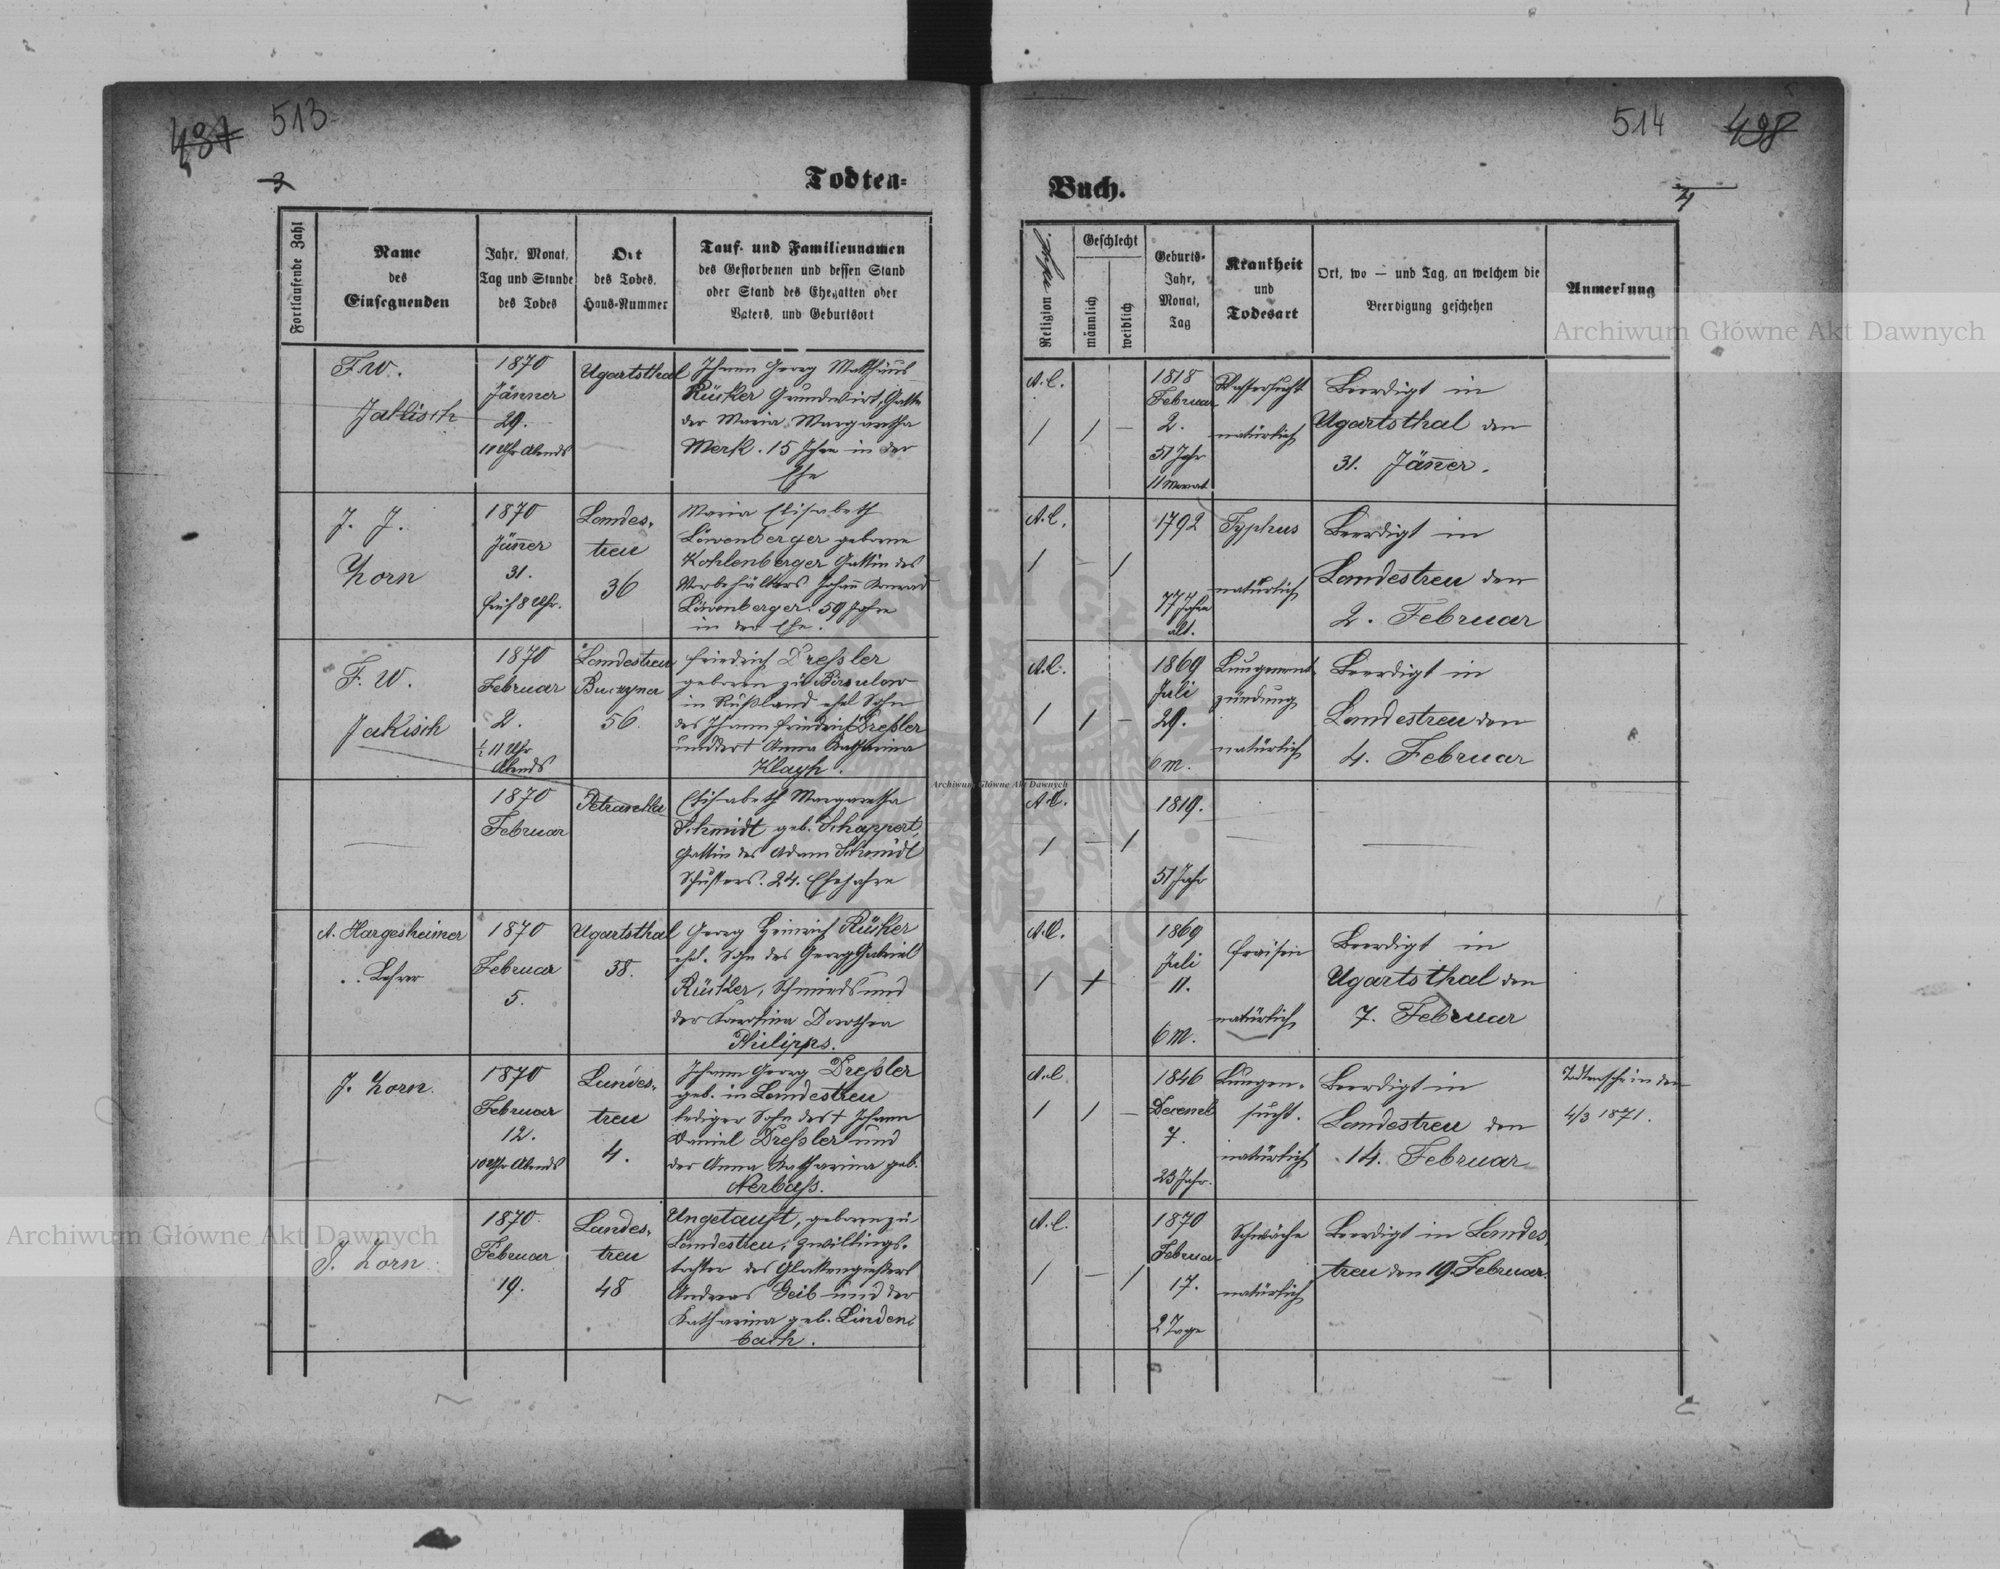 513
514
487
498
3
4
Todten-
Buch.
Fortlaufende Zahl
Name
des
Einsegnenden
Jahr, Monat,
Tag und Stunde
des Todes
Ort
des Todes,
Haus-Nummer
Tauf- und Familiennamen
des Gestorbenen und dessen Stand
oder Stand des Ehegatten oder
Vaters, und Geburtsort
Religion
Geschlecht
männlich
weiblich
Geburts-
Jahr,
Monat,
Tag
Krankheit
und
Todesart
Ort, wo — und Tag, an welchem die
Beerdigung geschehen
Anmerkung
F. W.
Jakisch
1870
Jänner
29.
10 Uhr Abends
Ugartsthal
Johann Georg Matthäus
Rücker Grundwirt, Gatte
der Maria Margaretha
Merk. 15 Jahre in der
Ehe
A. C.
1 1 —
1818
Februar
2.
51 Jahr
11 Monat
Wassersucht
natürlich
Beerdigt in
Ugartsthal den
31. Jäner.
J. J.
Zorn
1870
Jäner
31.
früh 8 Uhr.
Landes-
treu
36
Maria Elisabeth
Löwenberger geborne
Kohlenberger Gattin des
Johann Konrad
Löwenberger. 59 Jahre
in der Ehe.
A. C.
1 1
1792
77 Jahre
alt.
Typhus
natürlich
Beerdigt in
Landestreu den
2. Februar
F. W.
Jakisch
1870
Februar
2.
½ 11 Uhr
Abends
Landestreu
56.
Friedrich Dreßler
geboren zu
in Rußland ehel Sohn
des Johann Friedrich Dreßler
und der + Anna Katharina
A. C.
1 1 —
1869
Juli
29.
6 M.
Lungenent-
zündung
natürlich
Beerdigt in
Landestreu den
4. Februar
1870
Februar
Petranka
Elisabeth Margaretha
Schmidt geb. Schappert,
Gattin des Adam Schmidt
Schusters. 24. Ehejahre
A. C.
1 — 1
1819.
51 Jahr
A. Hargesheimer
Lehrer
1870
Februar
5.
Ugartsthal
38.
Georg Heinrich Rücker
ehel. Sohn des Georg Gabriel
Rücker, Schmieds und
der Karolina Dorothea
Philipps.
A. C.
1
1869
Juli
11.
6 M.
Fraisen
natürlich
Beerdigt in
Ugartsthal den
7. Februar
J. Zorn.
1870
Februar
12.
10 Uhr Abends
Landes-
treu
4.
Johann Georg Dreßler
geb. in Landestreu
lediger Sohn des + Johann
Daniel Dreßler und
der Anna Katharina geb.
Nerbaß.
A. C.
1 1 —
1846
Decemb
7.
23 Jahr.
Lungen-
sucht.
natürlich
Beerdigt in
Landestreu den
14. Februar
Todtenschein den
4/3 1871.
J. Zorn
1870
Februar
19.
Landes-
treu
48
Ungetauft, geboren zu
Landestreu, Zwillings-
tochter des Glockengießers
Andreas Geib und der
Katharina geb. Linden-
bach.
A. C.
1 — 1
1870
Februar
17.
2 Tage
Schwäche
natürlich
Beerdigt in Landes-
treu den 19. Februar.
Archiwum Główne Akt Dawnych
Archiwum Główne Akt Dawnych
Archiwum Główne Akt Dawnych